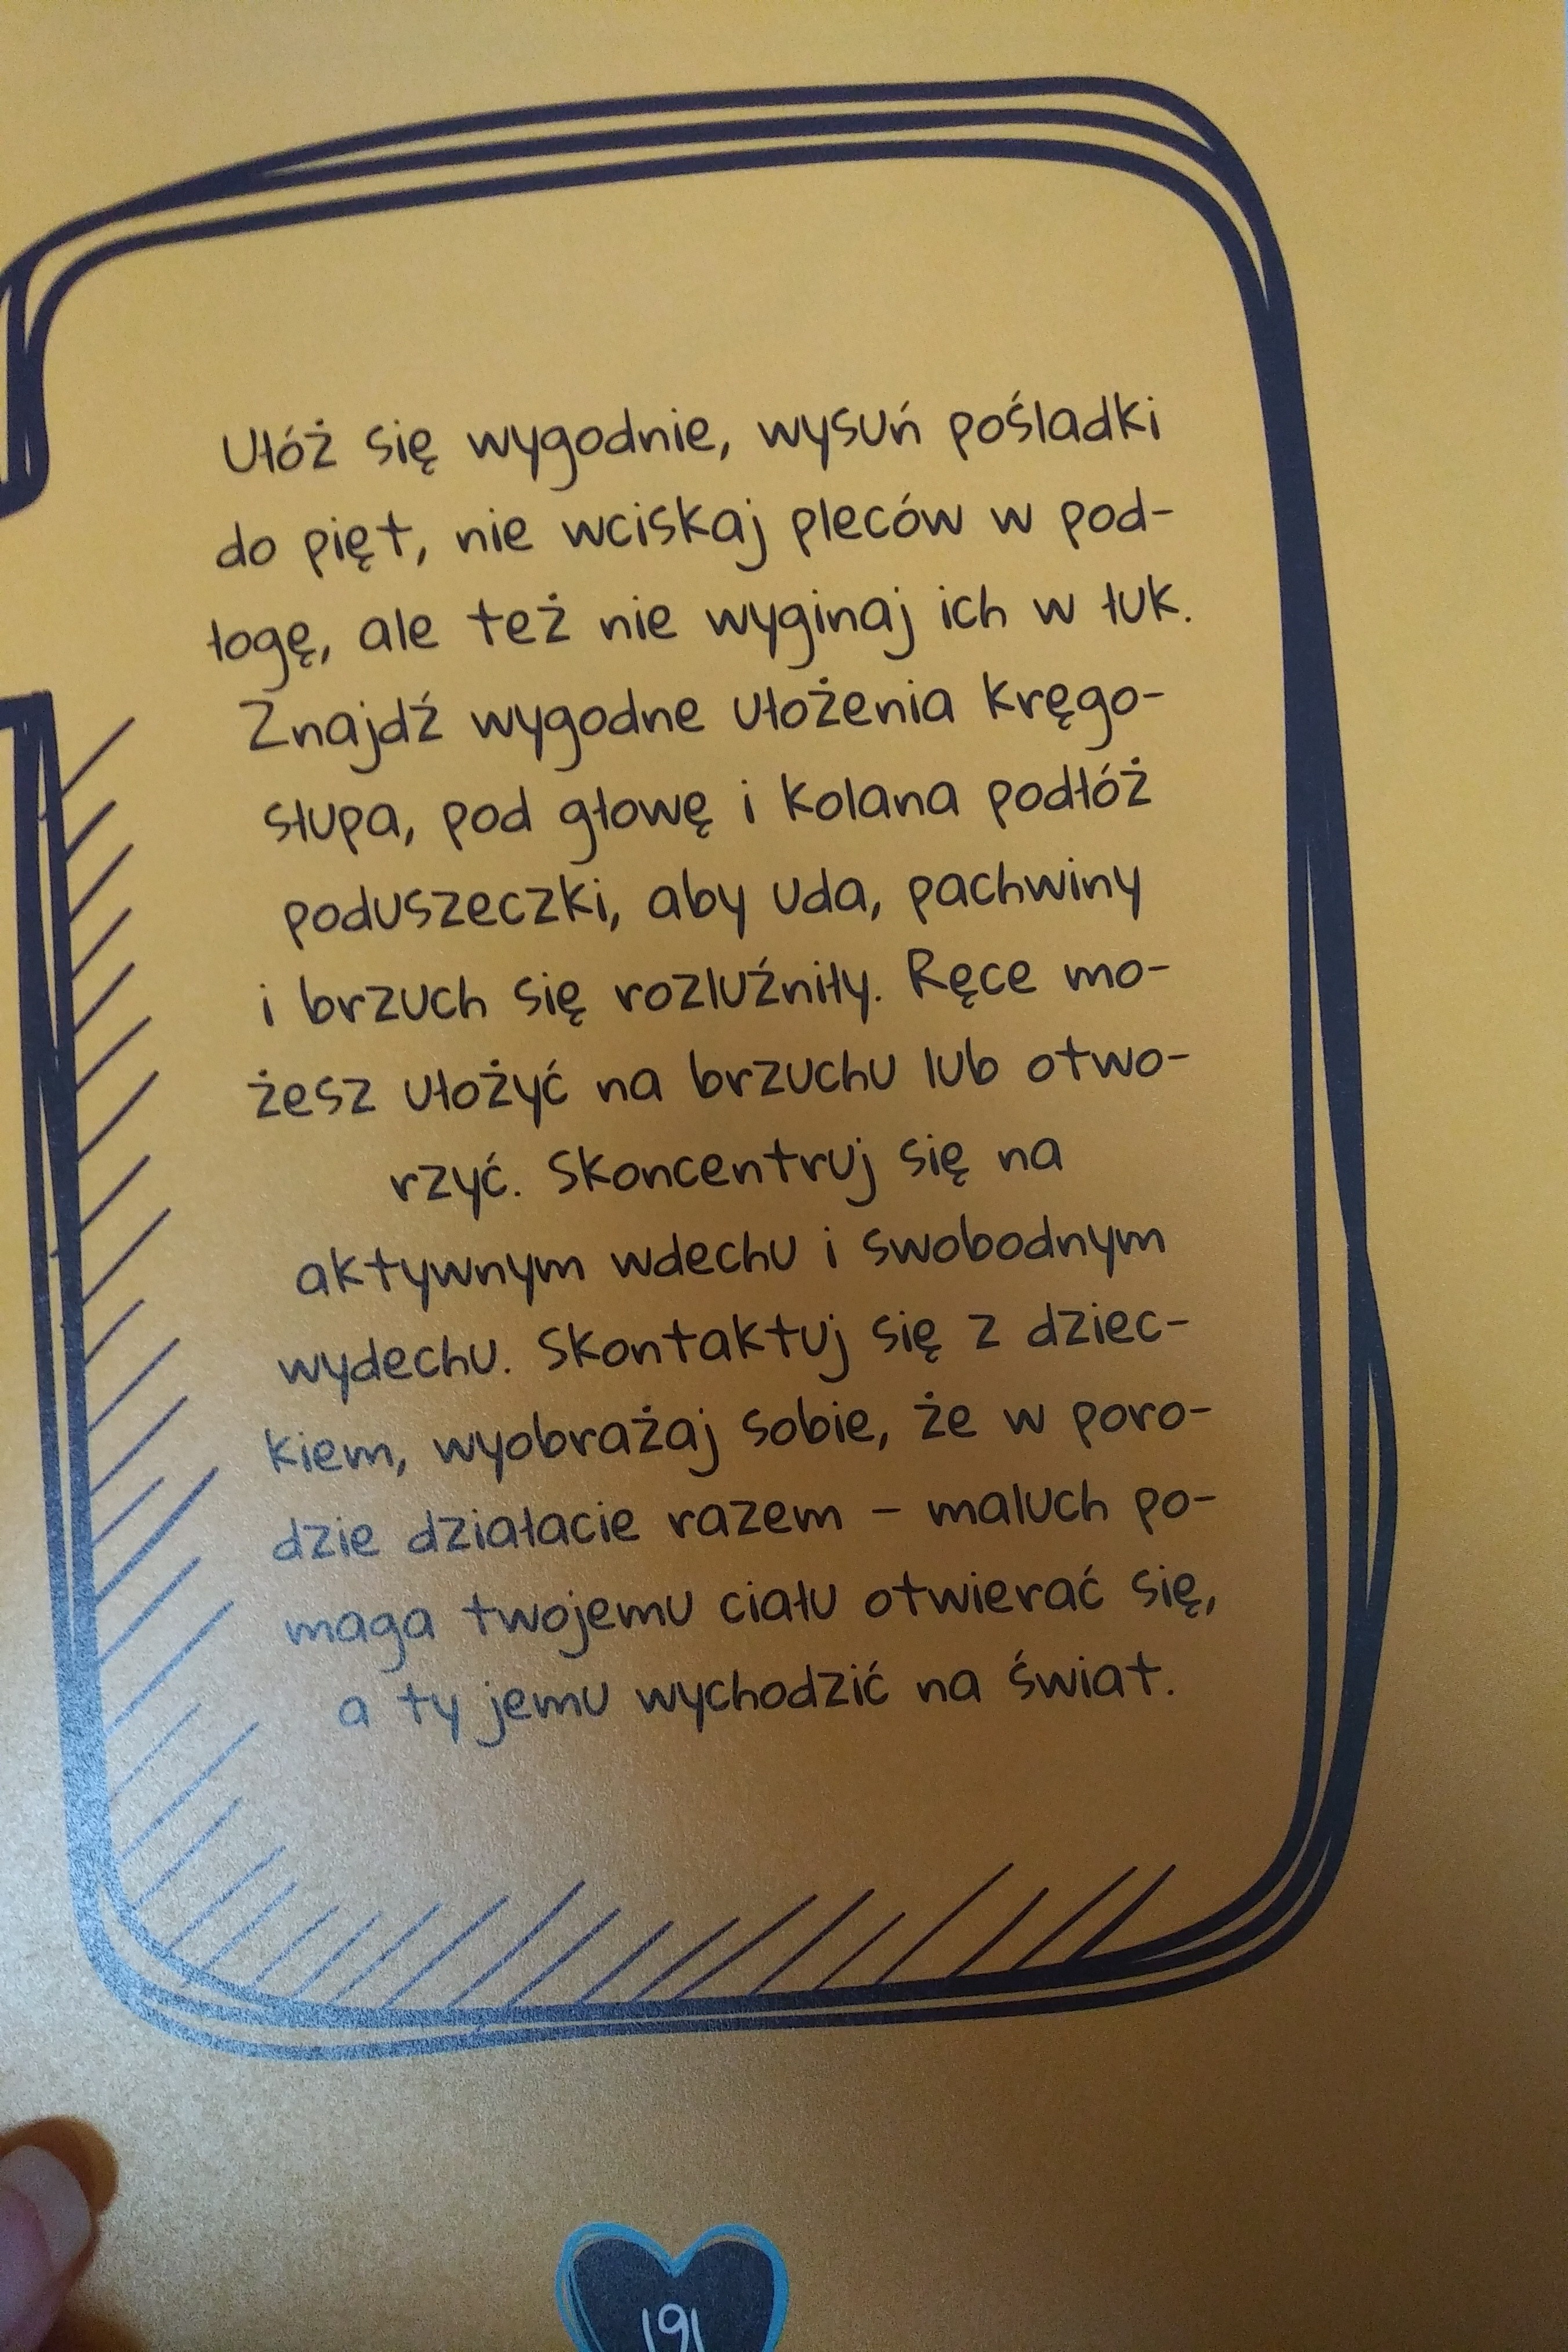 Ułóż się wygodnie, wysuń pośladki
do pięt, nie wciskaj pleców w pod-
łogę, ale też nie wyginaj ich w łuk.
Znajdź wygodne ułożenia kręgo-
słupa, pod głowę i kolana podłóż
poduszeczki, aby uda, pachwiny
i brzuch się rozluźniły. Ręce mo-
żesz ułożyć na brzuchu lub otwo-
rzyć. Skoncentruj się na
aktywnym wdechu i swobodnym
wydechu. Skontaktuj się z dziec-
kiem, wyobrażaj sobie, że w poro-
dzie działacie razem – maluch po-
maga twojemu ciału otwierać się,
a ty jemu wychodzić na świat.
191